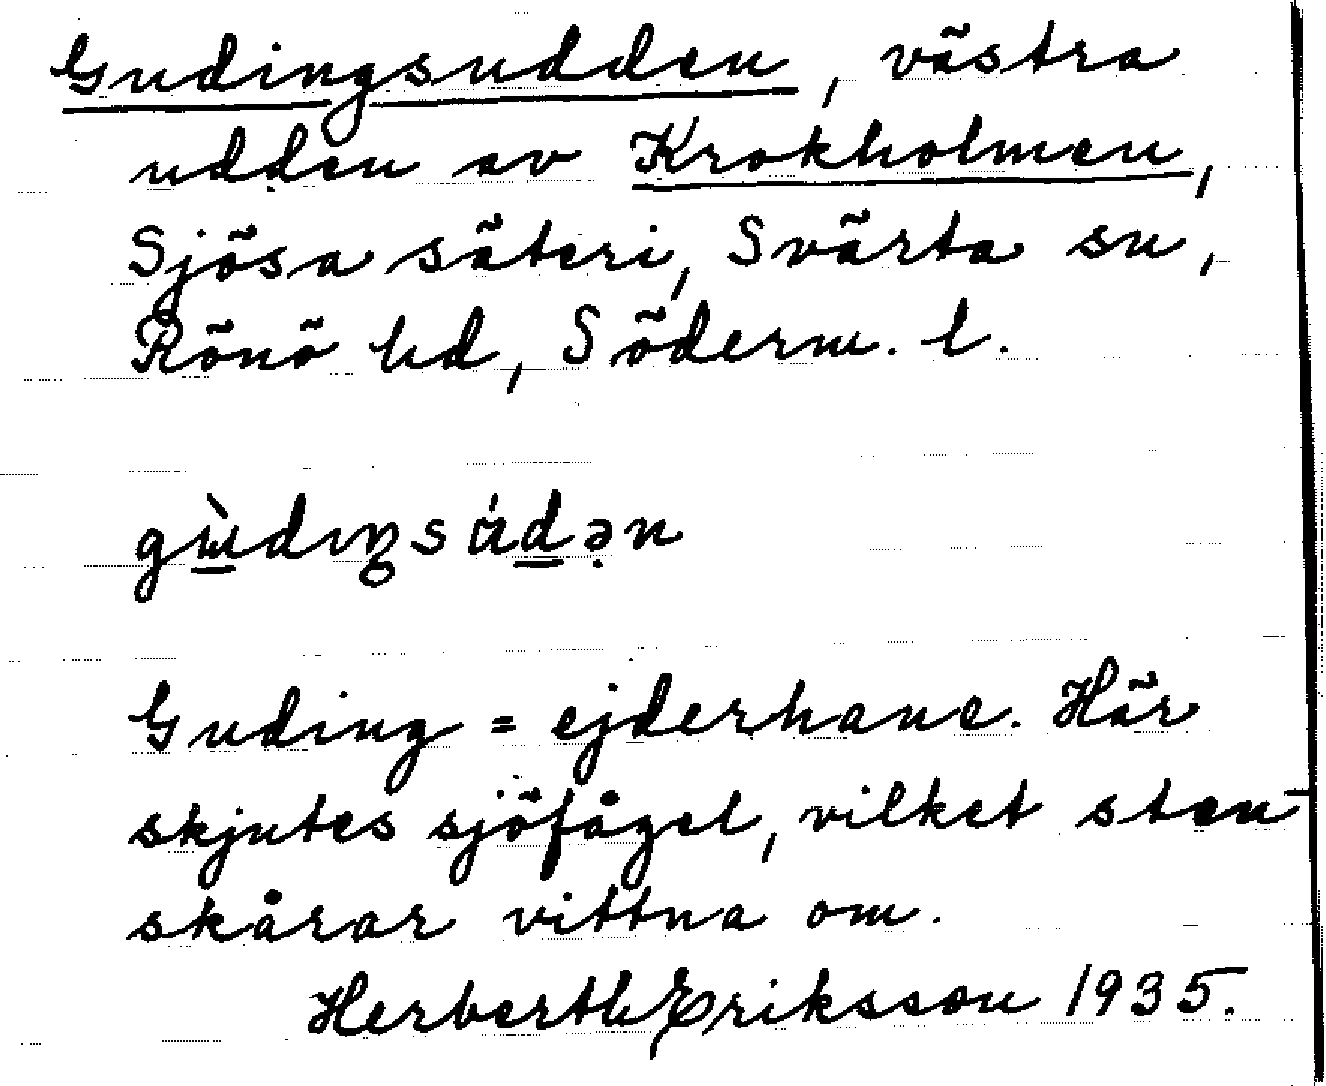 Gudingsudden, västra
udden av Krokholmen,
Sjösa säteri, Svärta sn,
Rönö hd, Söderm. l.
Guding = ejderhane. Här
skjutes sjöfågel, vilket sten-
skårar vittna om.
Herbert Eriksson 1935.